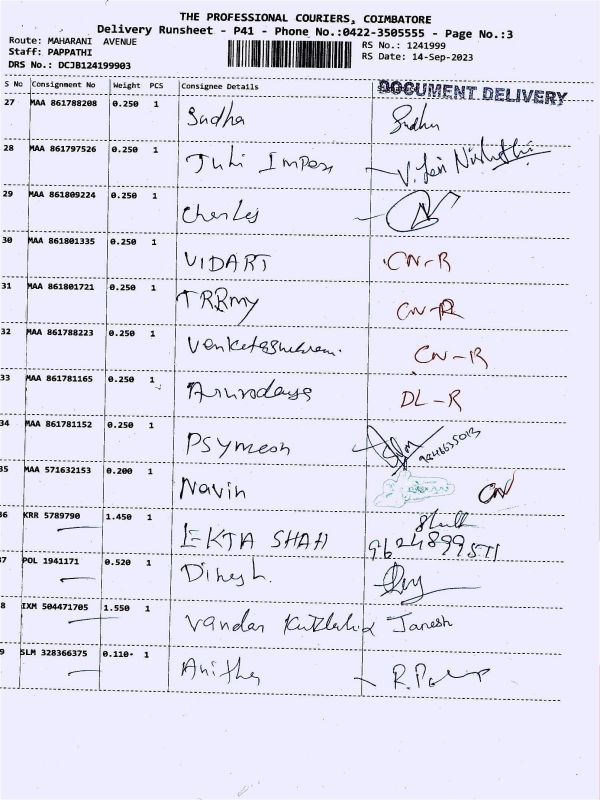 THE PROFESSIONAL COURIERS, COIMBATORE
Delivery Runsheet - P41 - Phone No.:0422-3505555 - Page No.:3
Route: MAHARANI AVENUE
RS No.: 1241999
Staff: PAPPATHI
RS Date: 14-Sep-2023
DRS No.: DCJB124199903
S No Consignment No Weight PCS Consignee Details
DOCUMENT DELIVERY
27 MAA 861788208 0.250 1 Sudha
28 MAA 861797526 0.250 1 Juhi Impex
29 MAA 861809224 0.250 1 Charles
30 MAA 861801335 0.250 1 VIDART CN-R
31 MAA 861801721 0.250 1 CN-R
32 MAA 861788223 0.250 1 CN-R
33 MAA 861781165 0.250 1 DL-R
34 MAA 861781152 0.250 1
35 MAA 571632153 0.200 1 Navin CN
36 KRR 5789790 1.450 1 EKTA SHAH
37 POL 1941171 0.520 1 Dinesh.
8 IXM 504471705 1.550 1 Vandan Janesh
9 SLM 328366375 0.110- 1 Anitha